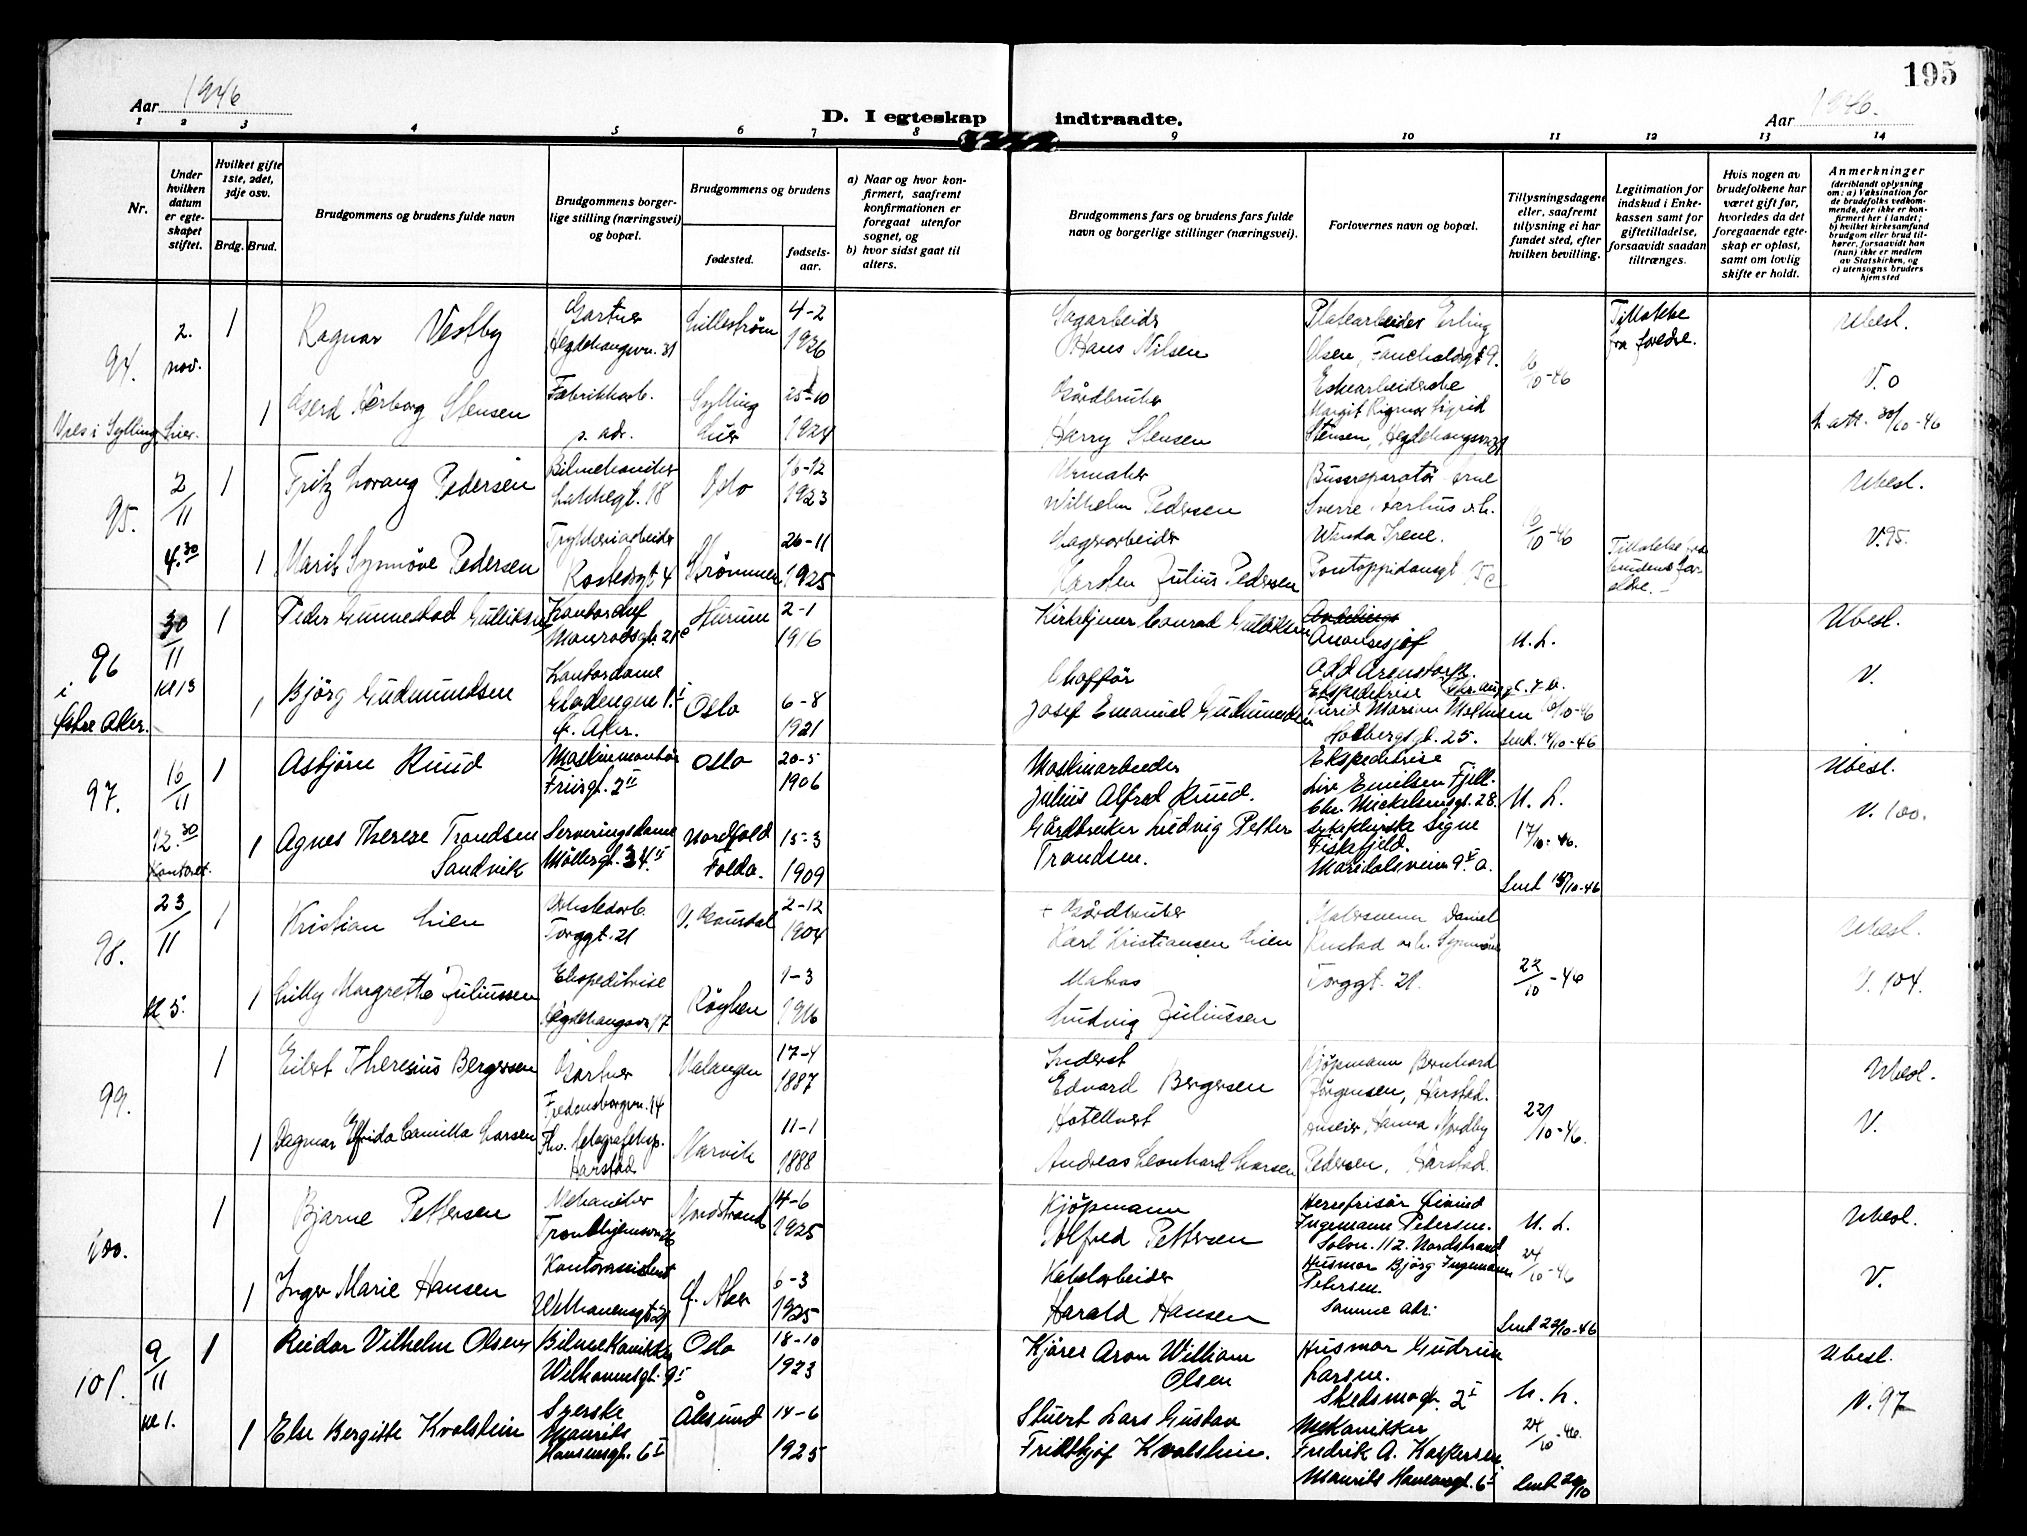 195
Aar 1946
D. I egteskap indtraadte.
Aar 1946.
1 2 3 4 5 6 7 8 9 10 11 12 13 14
Nr.
Under hvilken datum er egteskapet stiftet.
Hvilket gifte 1ste, 2det, 3dje osv.
Brdg. Brud.
Brudgommens og brudens fulde navn
Brudgommens borgerlige stilling (næringsvei) og bopæl.
Brudgommens og brudens
fødested.
fødselsaar.
a) Naar og hvor konfirmert, saafremt konfirmationen er foregaat utenfor sognet, og
b) hvor sidst gaat til alters.
Brudgommens fars og brudens fars fulde navn og borgerlige stillinger (næringsvei).
Forlovernes navn og bopæl.
Tillysningsdagene eller, saafremt tillysning ei har fundet sted, efter hvilken bevilling.
Legitimation for indskud i Enkekassen samt for giftetilladelse, forsaavidt saadan tiltrænges.
Hvis nogen av brudefolkene har været gift før, hvorledes da det foregaaende egteskap er opløst, samt om lovlig skifte er holdt.
Anmerkninger
(deriblandt oplysning om: a) Vaksination for de brudefolks vedkommende, der ikke er konfirmert her i landet; b) hvilket kirkesamfund brudgom eller brud tilhører, forsaavidt han (hun) ikke er medlem av Statskirken, og c) utensogns bruders hjemsted
94.
2. nov.
1
Ragnar Vestby
Gartner
Hegdehaugsvn. 31
Lillestrøm
4-2
1926
Sagarbeider
Hans Nilsen
Platearbeider Erling
Olsen,
10/10-46
Tillatelse
fra foredre.
Ubesl.
Vies i Sylling, Lier.
1
Gerd Herborg Stensen
Fabrikkarb.
s. adr.
Sylling
Lier
25-10
1924
Gårdbruker
Harry Stensen
Eskearbeiderske
Margit Rigmor Sigrid
Stensen, Hegdehaugsvn 31
V. 0
L. att. 30/10-46
95.
2/11
4.30
1
Fritz Lorang Pedersen
Bilmekaniker
Lakkegt. 18
Oslo
16-12
1923
Urmaker
Wilhelm Pedersen
Bussreparatør
Sverre Aarhus o.h.
Ubesl.
1
Maris Synnöve Pedersen
Trykkeriarbeider
Rostedsgt 4
Strømmen
26-11
1925
Lagerarbeider
Karsten Julius Pedersen
Wanda Irene.
Pontoppidansgt
10/10-46
Tillatelse fra
brudens for-
eldre. -
V. 95.
96
i
Østre Aker.
30/11
kl 13
1
Peder Gunnestad Gulliksen
Kontorchef
Monradsgt. 21 c
Hurum
2-1
1916
Kirketjener Conrad Gulliksen
Anonsesjef
Odd Arenstorff.
U. L.
Ubesl.
1
Björg Gudmundsen
Kontordame
Gladengvn 1 I
Ø. Aker.
Oslo
6-8
1921
Chafför
Josef Emanuel Gudmundsen
Ekspeditrise
Holbergsgt. 25.
10/10-46
Lmk. 14/10-46
V.
97.
16/11
12.30
Kontoret.
1
Asbjörn Ruud
Maskinmontör
Friisgt. 2 II
Oslo
20-5
1906
Maskinarbeider
Julius Alfred Ruud.
Ekspeditrise
Liv Emilsen Fjell.
Chr. Mickelsensgt. 28.
U. L.
Ubesl.
1
Agnes Therese Trondsen
Sandvik
Serveringsdame
Møllergt. 34 II
Nordfold
Folda.
15-3
1909
Gårdbruker Ludvig Petter
Trondsen.
Signe
Fiskefjeld.
Maridalsveien 9 I a.
17/10-46.
Lmk 18/10-46
V. 100.
98.
23/11
kl 5.
1
Kristian Lien
Verkstedarb.
Torggt. 21
V. Gausdal
2-12
1904
Gårdbruker
Karl Kristiansen Lien
Malersvenn Daniel
Rustad o.h. Synnöve
Torggt. 21.
22/10-46
Ubesl.
1
Lilly Margrethe Juliussen
Ekspeditrise
Hegdehaugsvn 17
Røyken
1-3
1916
Matros
Ludvig Juliussen
V. 104.
99.
1
Eilert Theresius Bergersen
Gartner
Fredensborgvn. 14
Malangen
17-4
1887
Inderst
Edvard Bergersen
Kjøpmann Bernhard
Jørgensen, Harstad.
22/10-46.
Ubesl.
1
Dagmar Elfrida Camilla Larsen
Fhv. telegrafeksp.
Harstad
Narvik
11-1
1888
Hotellvert
Andreas Leonhard Larsen
Hanna Nordby
Pedersen, Harstad.
V.
100.
1
Bjarne Pettersen
Mekaniker
Trondhjemsvn 26
Nordstrand
14-6
1925
Kjöpmann
Alfred Pettersen
Herrefrisör Eivind
Ingemann Petersen.
Solvn. 112. Nordstrand
U. L.
Ubesl.
1
Inger Marie Hansen
Kontorassistent
Welhavensgt 29
Ø. Aker
6-3
1925
Kabelarbeider
Harald Hansen
Husmor Björg Ingemann
Petersen.
Samme adr.
24/10-46
Lmk 29/10-46
V.
101.
9/11
kl 1.
1
Reidar Vilhelm Olsen
Bilmekanikker
Welhavensgt. 9 I
Oslo
18-10
1923
Kjörer Aron William
Olsen
Husmor Gudrun
Larsen.
Skedsmogt. 2 I
U. L.
Ubesl.
1
Else Bergitte Kvalstein
Syerske
Maurits
Hansensgt. 6 I
Ålesund
14-6
1925
Stuert Lars Gustav
Fridthjof Kvalstein.
Mekanikker
Fredrik A. Kaspersen
Maurits Hansensgt. 6 I
24/10-46.
Lmk 29/10
V. 97